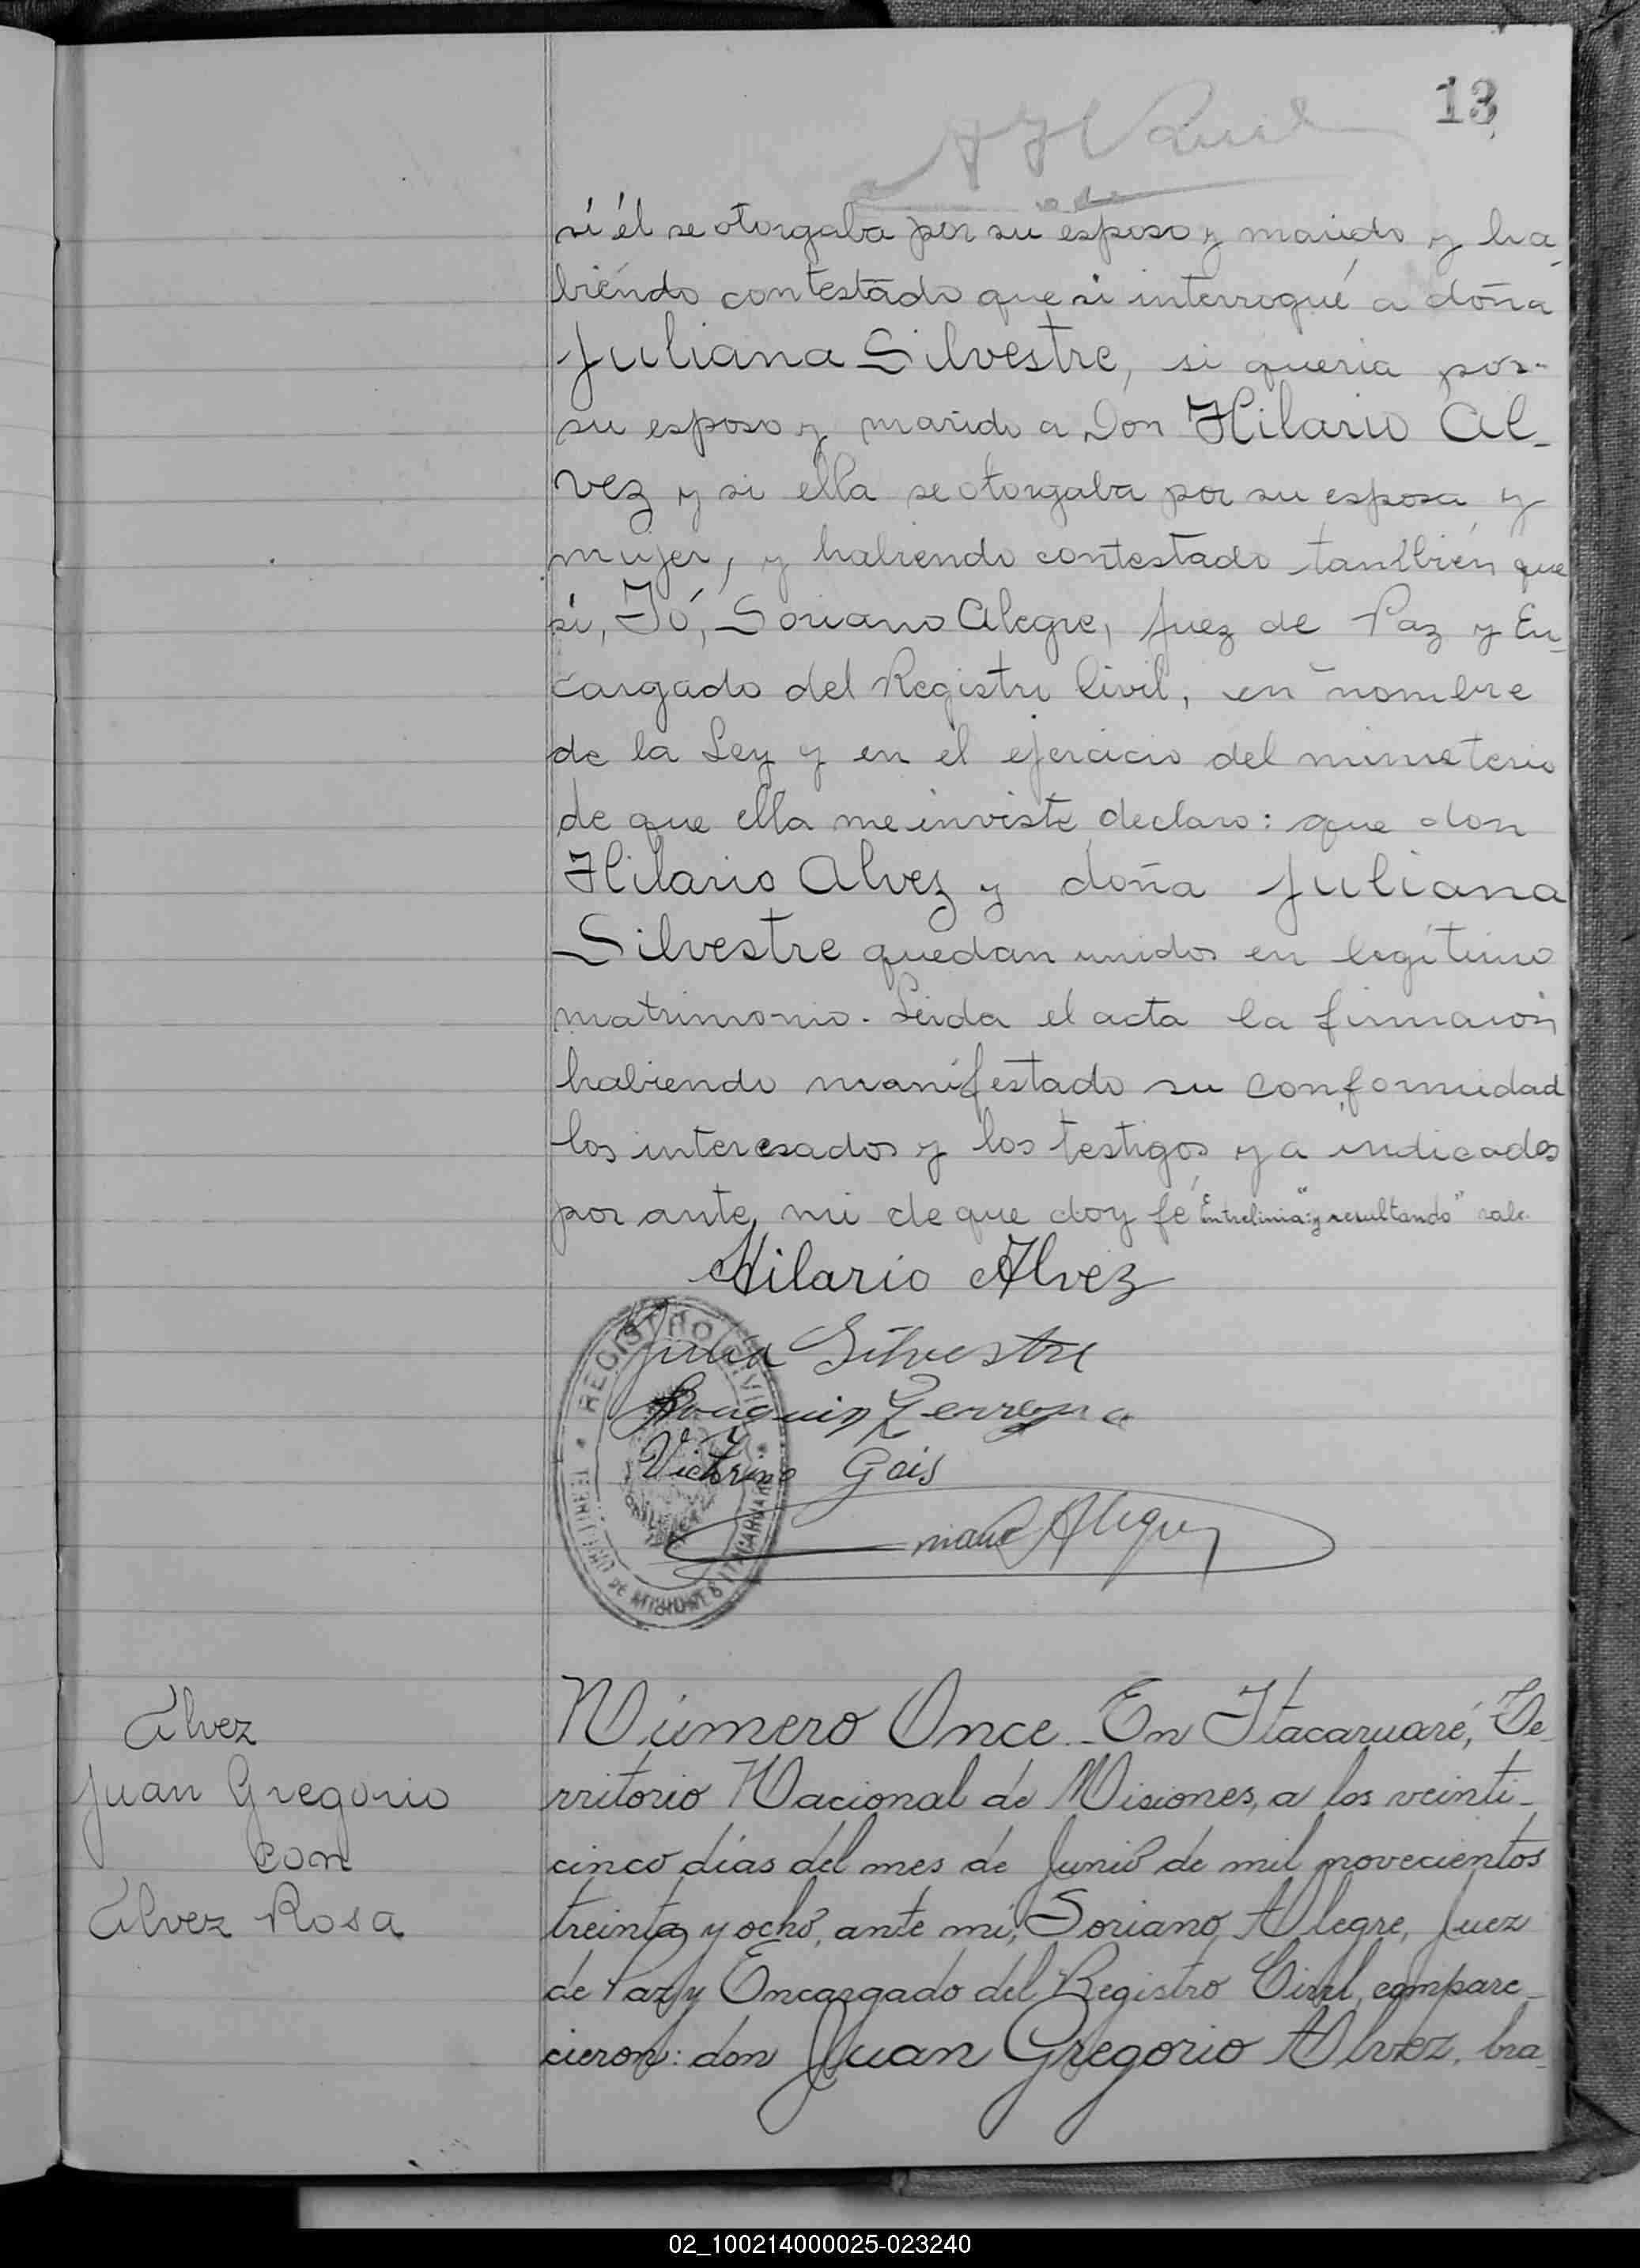 13
si él se otorgaba por su esposo y marido y ha-
biéndo contestado que si interrogué a doña
Juliana Silvestre, si queria por-
su esposo y marido a Don Hilario Al-
vez y si ella se otorgaba por su esposa y
mujer, y habiendo contestado también que
si, Yó, Soriano Alegre, Juez de Paz y En-
cargado del Registro Civil, en nombre
de la Ley y en el ejercicio del ministerio
de que ella me inviste declaro: que don
Hilario Alvez y doña Juliana
Silvestre quedan unidos en legítimo
matrimonio. Leida el acta la firmaron
habiendo manifestado su conformidad
los interesados y los testigos ya indicados
por ante mi de que doy fé Entrelinia: "y resultando" vale.
Hilario Alvez
Silvestre
Victorino Gois
Alegre
REGISTRO CIVIL
TERRITORIO DE MISIONES ITACARUARÉ
Alvez
Juan Gregorio
con
Alvez Rosa
Número Once. En Itacaruaré, Te-
rritorio Nacional de Misiones, a los veinti-
cinco días del mes de Junio de mil novecientos
treinta y ocho, ante mi, Soriano Alegre, Juez
de Paz y Encargado del Registro Civil, compare-
cieron: don Juan Gregorio Alvez, bra-
02_100214000025-023240